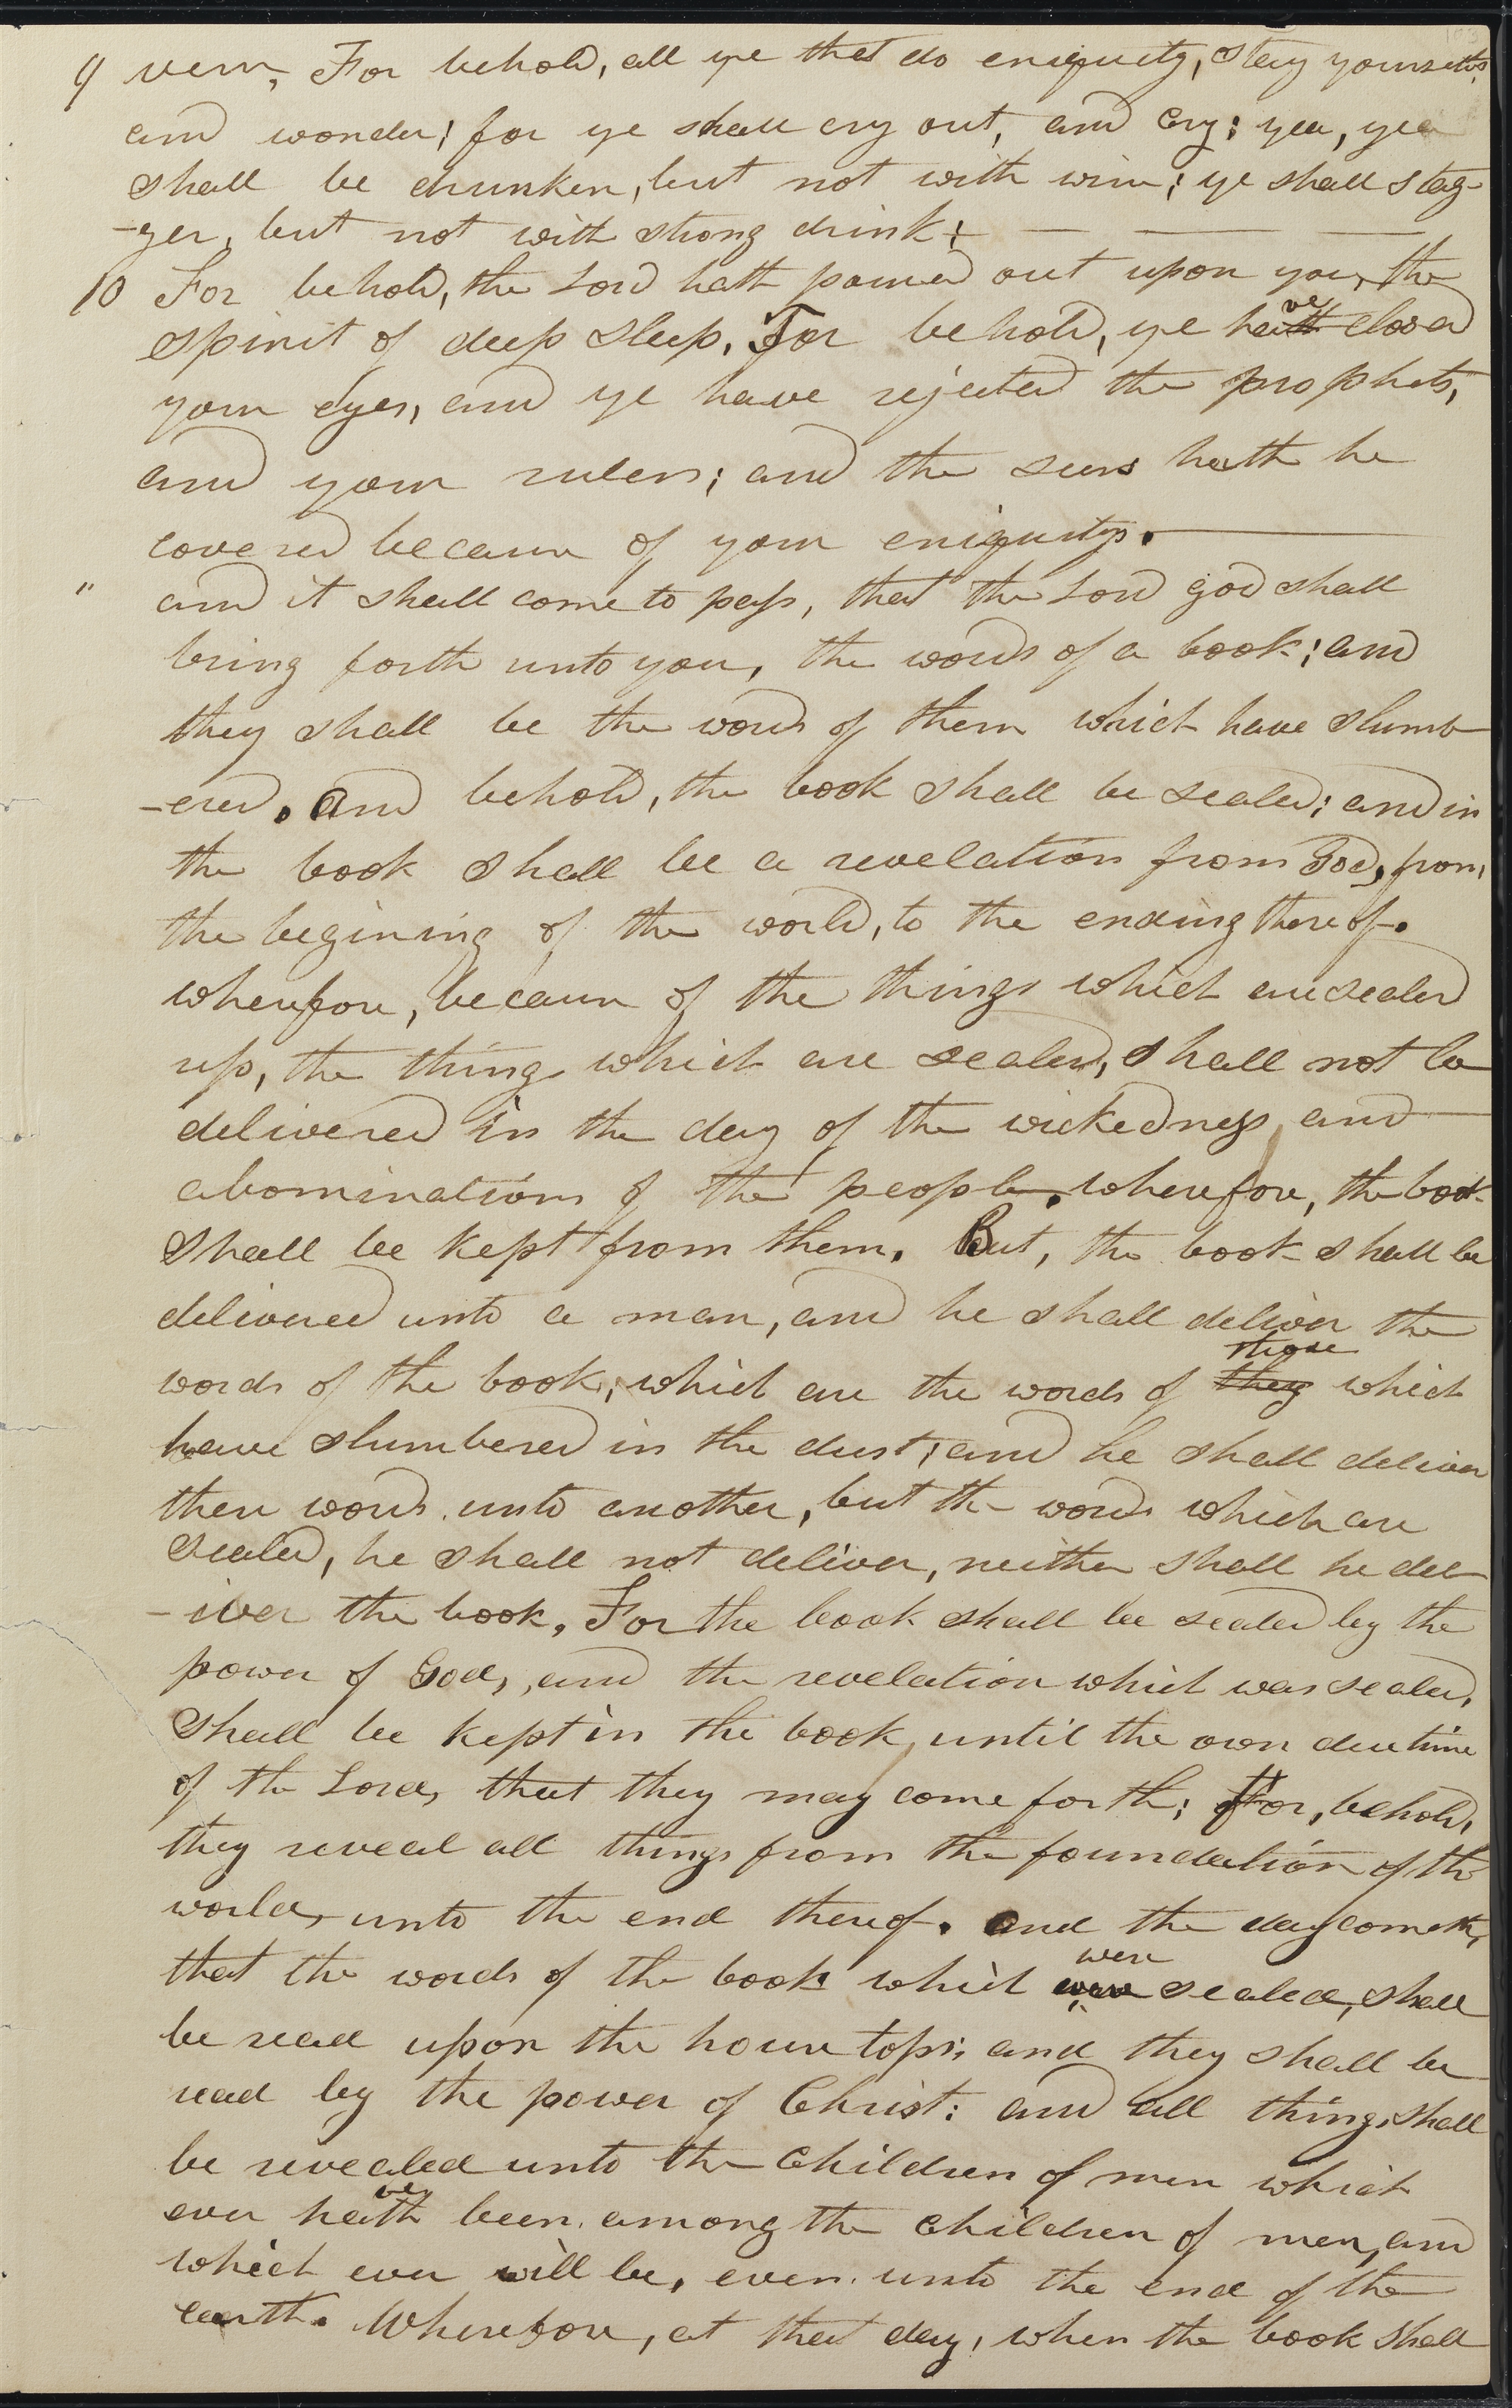 9 vern, For behold, all ye that do eniquity, stay yourselves,
and wonder; for ye shall cry out, and cry; yea, yea
shall be drunken, but not with wine; ye shall stag-
-ger, but not with strong drink;
10 For behold, the Lord hath poured out upon you, the
spirit of deep sleep. For behold, ye hath ve closed
your eyes, and ye have rejected the prophets,
and your rulers; and the seers hath he
covered because of your eniquity.
" and it shall come to pass, that the Lord god shall
bring forth unto you, the words of a book; and
they shall be the words of them which have slumb-
-ered. And behold, the book shall be sealed; and in
the book shall be a revelation from God, from
the begining of the world, to the ending thereof.
wherefore, because of the things which are sealed
up, the things which are sealed, shall not be
delivered in the day of the wickedness and
abominations of the people. wherefore, the book
shall be kept from them. But, the book shall be
delivered unto a man, and he shall deliver the
words of the book, which are the words of they those which
have slumbered in the dust; and he shall deliver
these words unto another, but the words which are
sealed, he shall not deliver, neither shall he del-
-iver the book. For the book shall be sealed by the
power of God, and the revelation which was sealed,
shall be kept in the book until the own due time
of the Lord, that they may come forth; for, behold,
they reveal all things from the foundation of the
world, unto the end thereof. and the day cometh,
that the words of the book which were sealed, shall
be read upon the house tops; and they shall be
read by the power of Christ: and all things shall
be revealed unto the children of men which
ever hath ve been among the children of men, and
which ever will be, even unto the end of the
earth. Wherefore, at that day, when the book shall